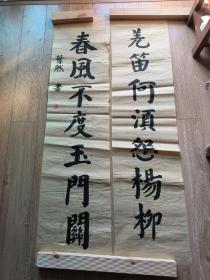 羌笛何湏怨楊柳
春風不度玉門關